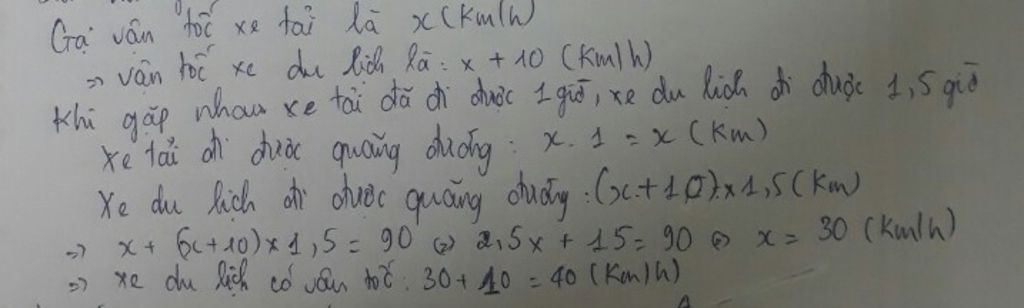 Gọi vận tốc xe tải là x (Km/h)
=> vận tốc xe du lịch là: x + 10 (Km/h)
Khi gặp nhau xe tải đã đi được 1 giờ, xe du lịch đi được 1,5 giờ
Xe tải đi được quãng đường: x. 1 = x (Km)
Xe du lịch đi được quãng đường: (x+10)x1,5(Km)
=> x + (x+10)x1,5 = 90 <=> 2,5x + 15 = 90 <=> x = 30 (Km/h)
=> xe du lịch có vận tốc: 30 + 10 = 40 (Km/h)